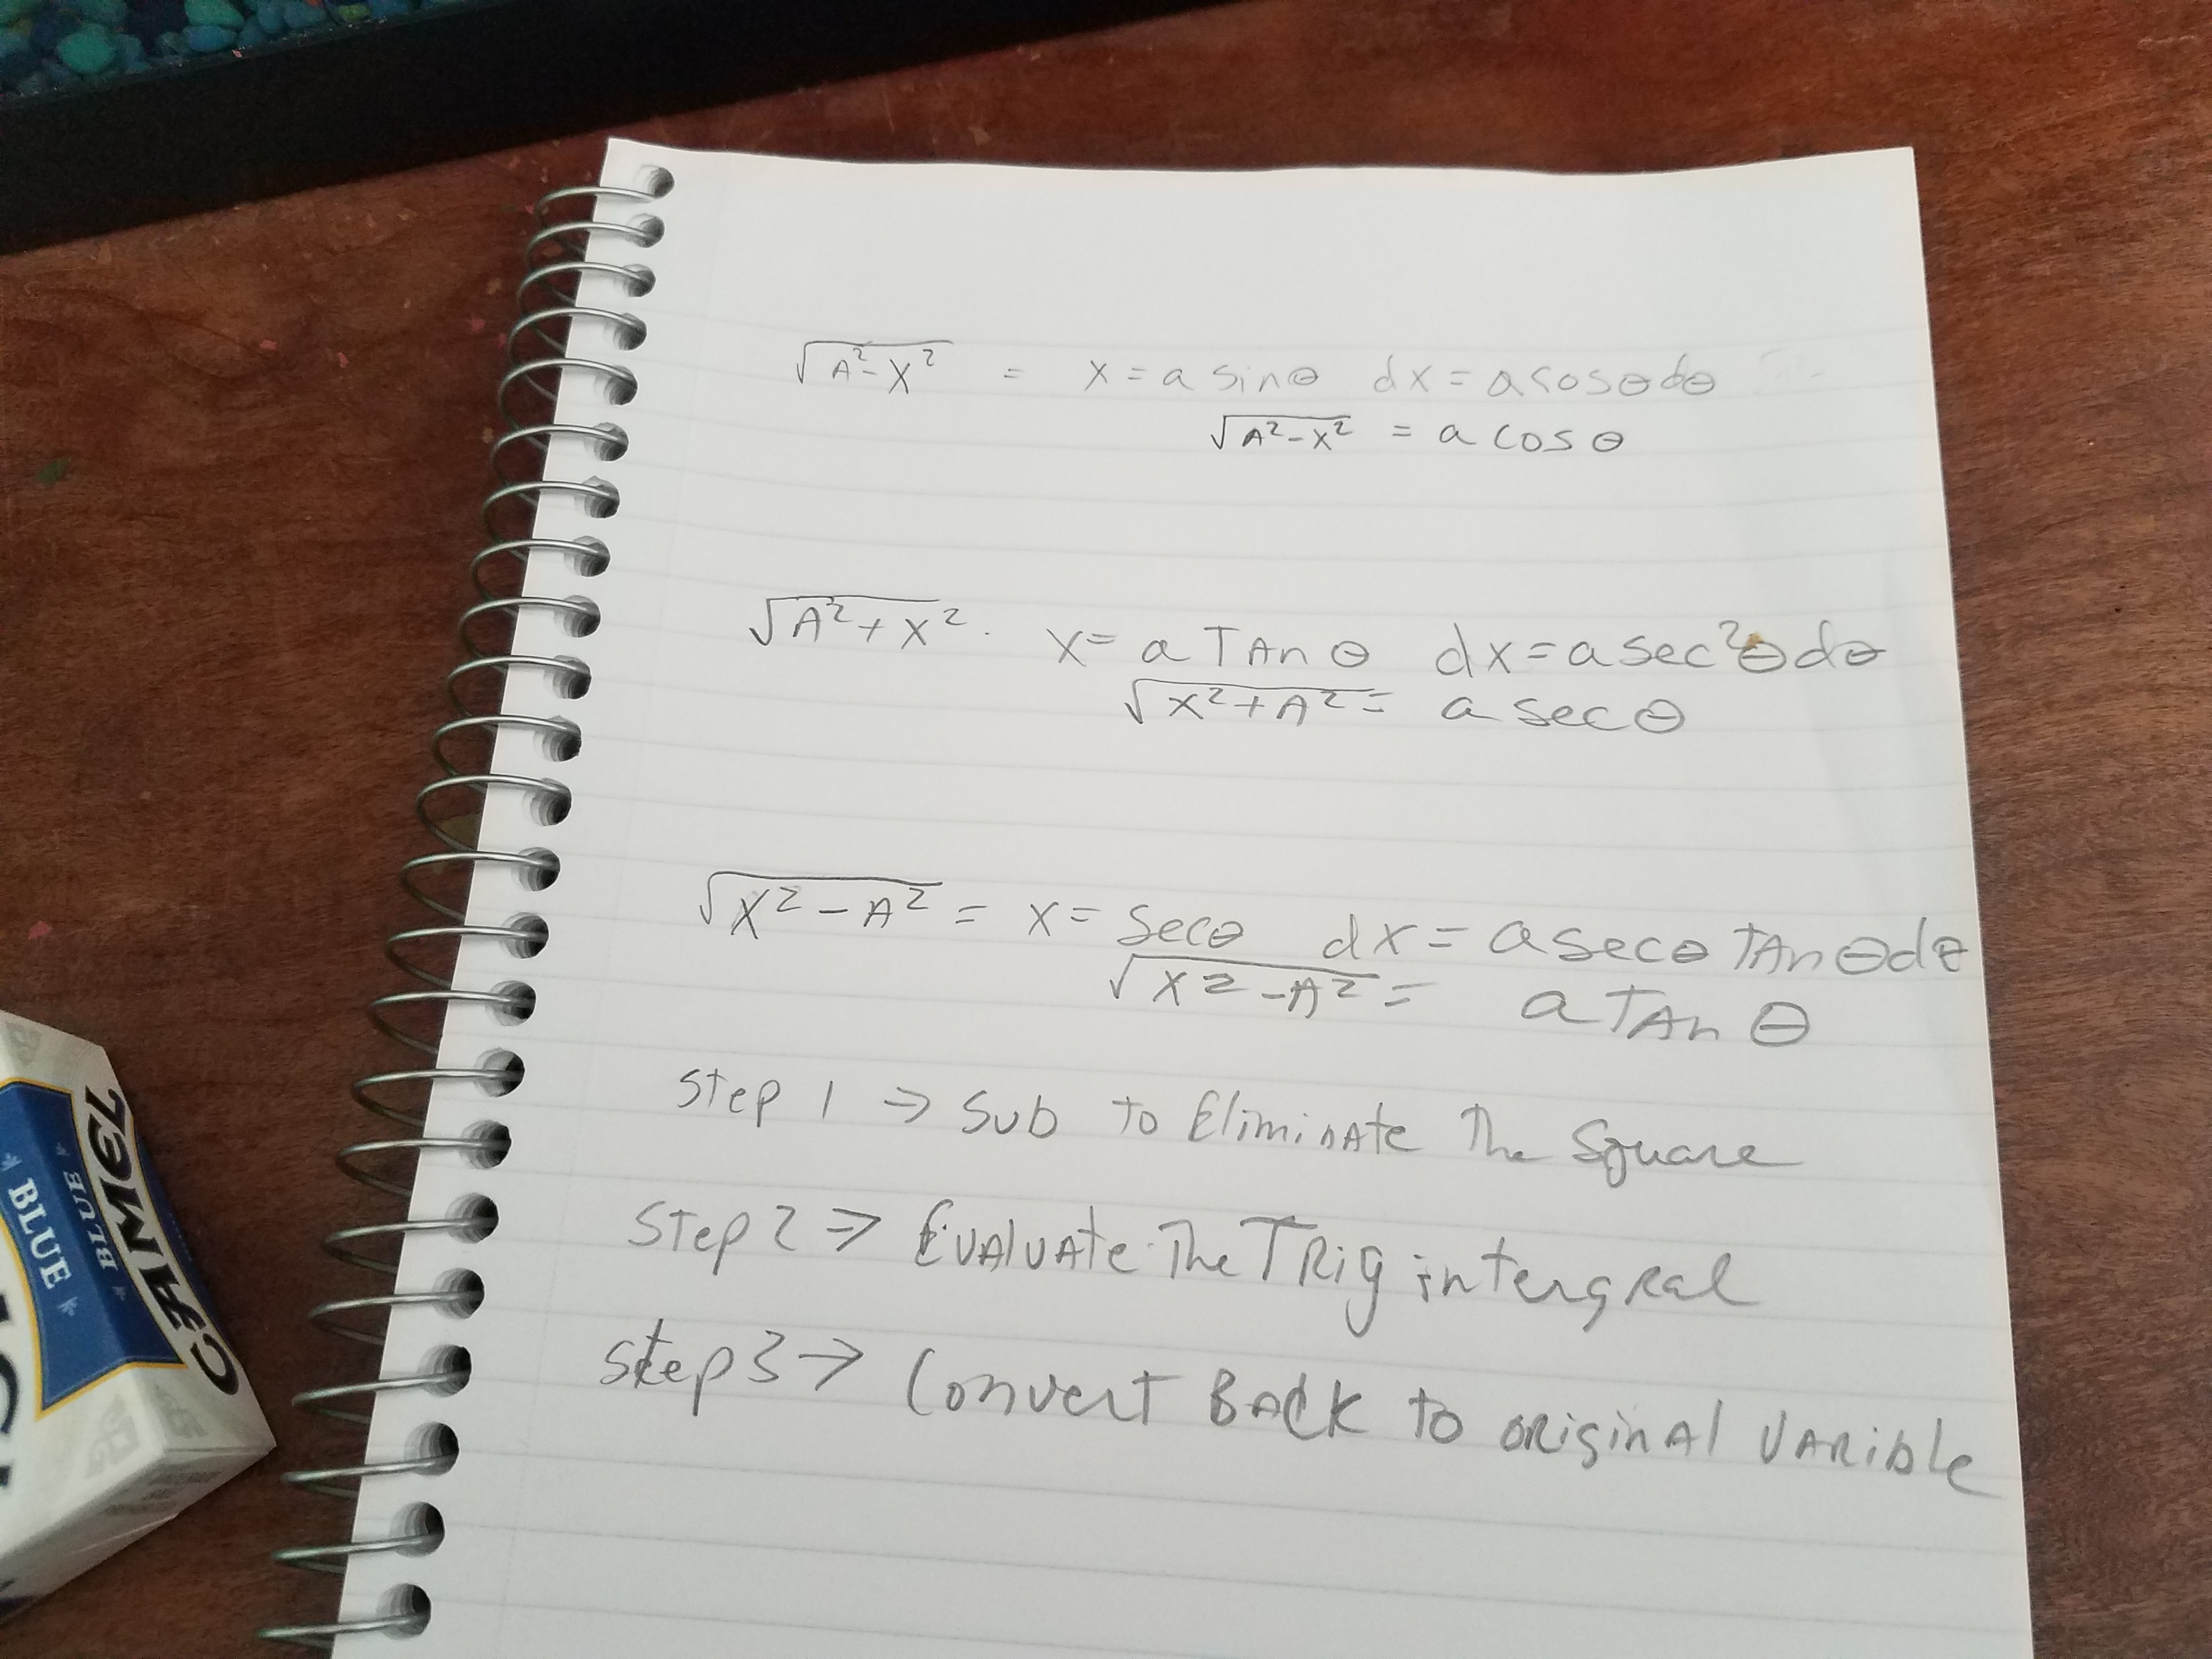 √A²-X² = X = a sinθ dx = a cosθdθ
√A²-X² = a cosθ
√A²+X². X= a TAnθ dx=a sec²θdθ
√X²+A² = a secθ
√X²-A² = X= Secθ dx= a secθ TAnθdθ
√X²-A² = a TAn θ
Step 1 → Sub to Eliminate The Square
Step 2 ⇒ EvAluAte The TRig intergral
Step 3 → Convert BAck to originAl VARible
CAMEL
BLUE
BLUE